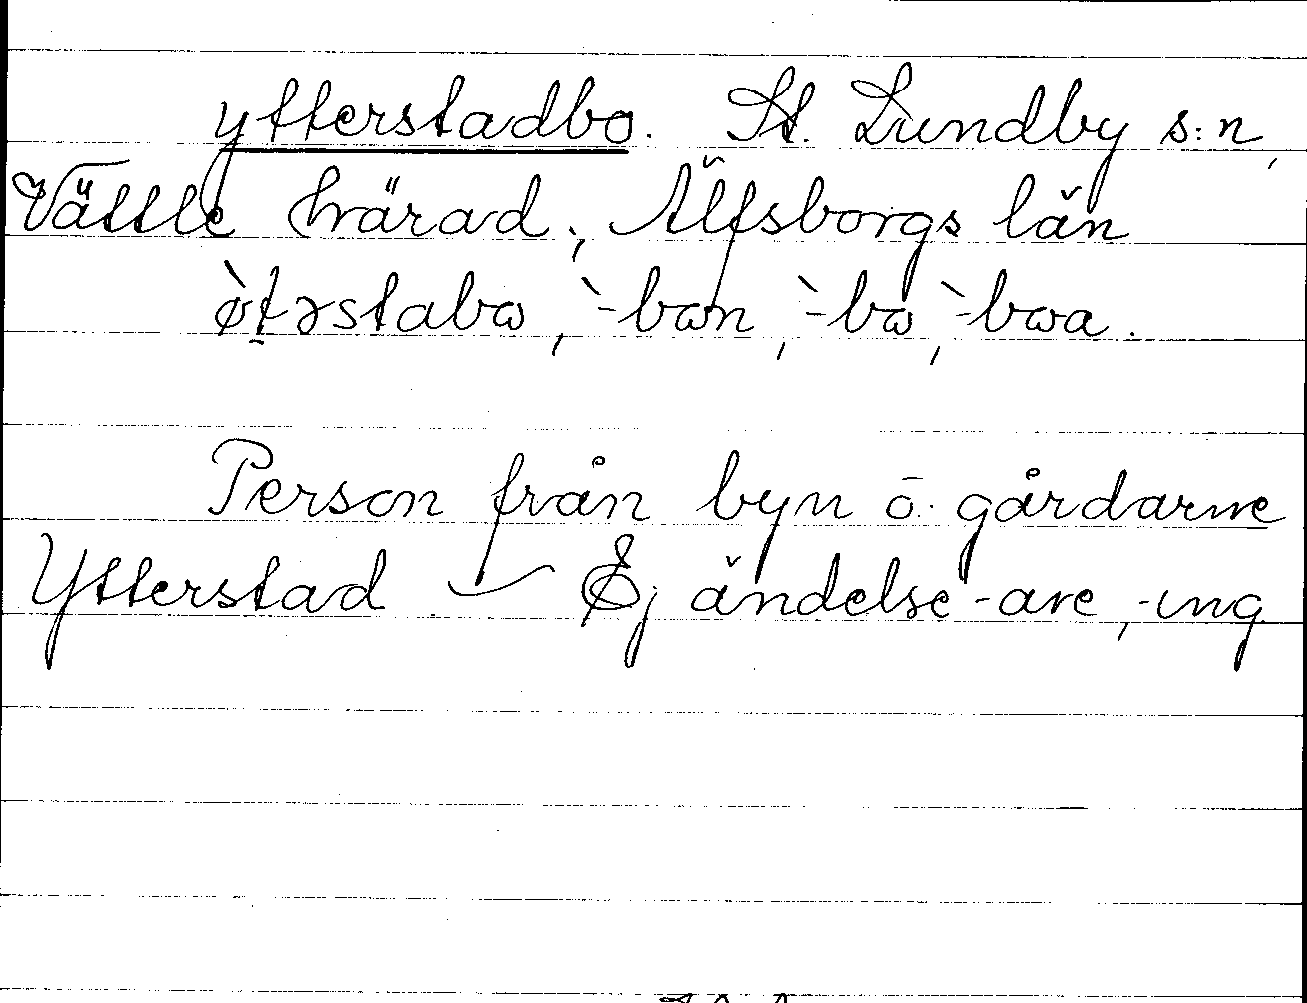 ytterstadbo. St. Lundby s:n,
Vättle härad, Älfsborgs län
ø̀t̠ərstabɷ, `-bɷn, `-bɷ, `-bɷa.
Person från byn o. gårdarne
Ytterstad Ej ändelse -are, -ing